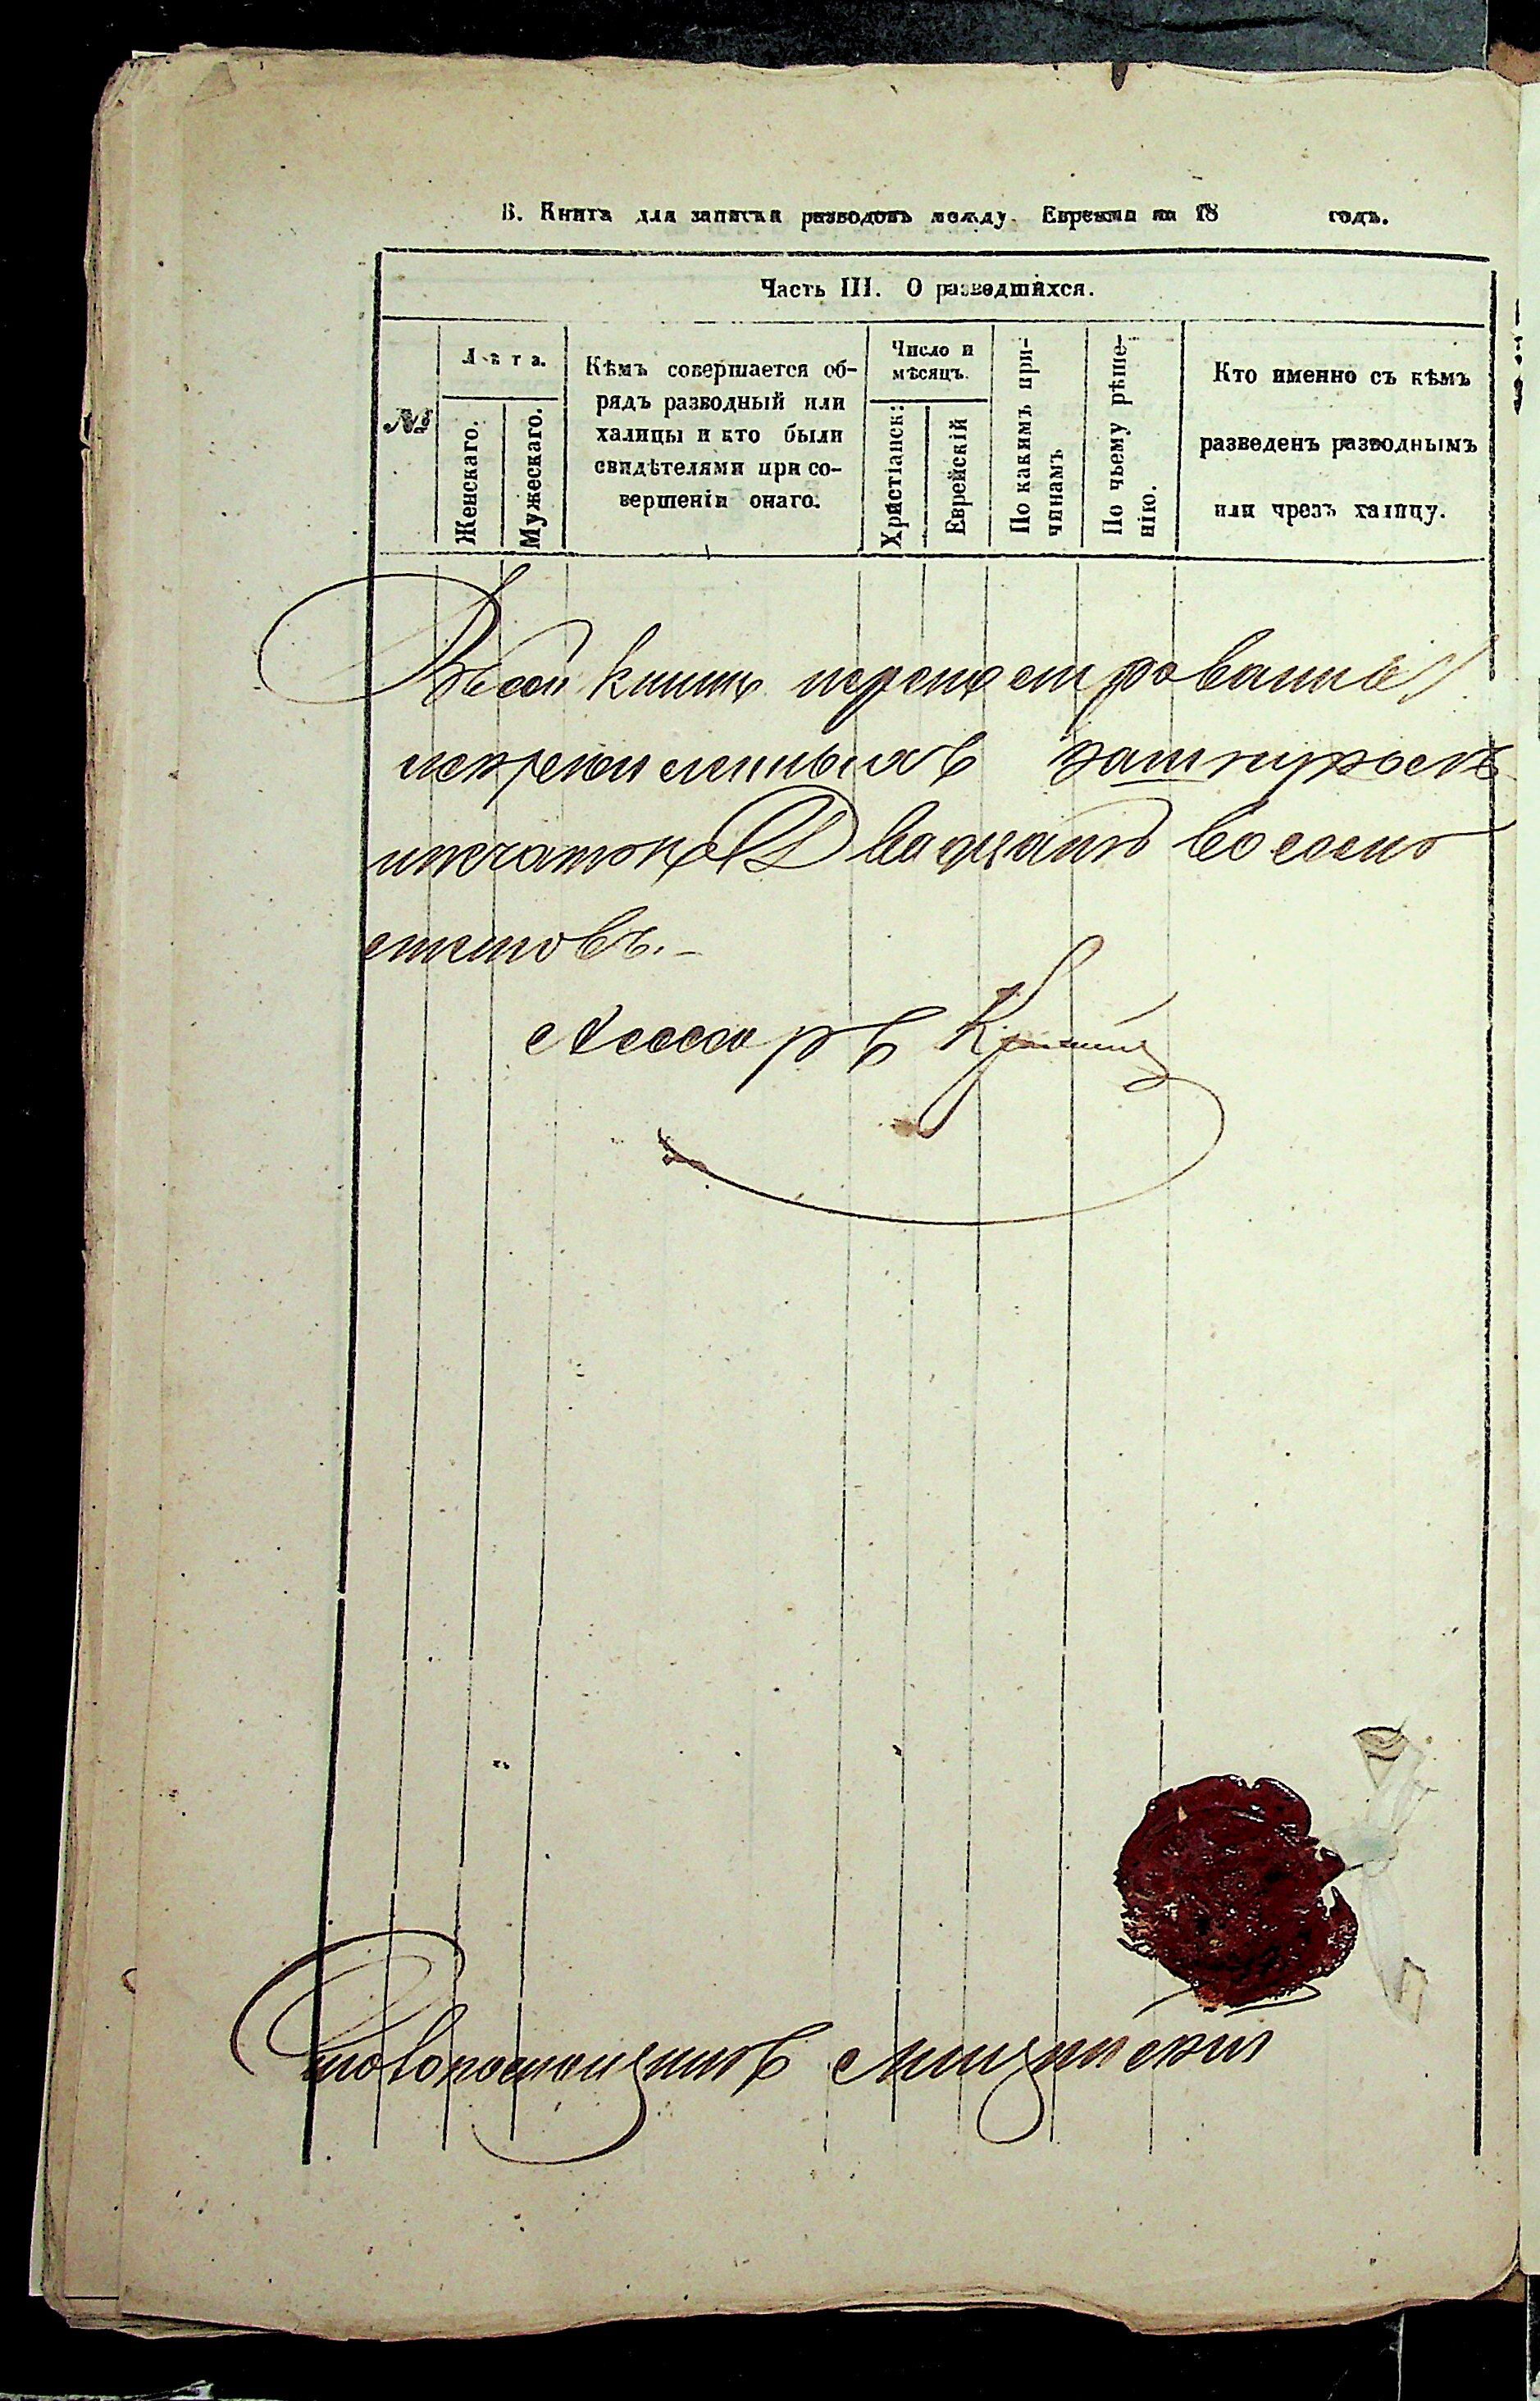 В. Книга для записки разводовъ между Евреями на 18 годъ.
Часть III. О разведшихся.
№
Лѣта.
Женскаго.
Мужескаго.
Кѣмъ совершается об-
рядъ разводный или
халицы и кто были
свидѣтелями при со-
вершеніи онаго.
Число и
мѣсяцъ.
Христіанск:
Еврейскій
По какимъ при-
чинамъ
По чьему рѣше-
нію.
Кто именно съ кѣмъ
разведенъ разводнымъ
или чрезъ халицу.
Въ сей книгѣ
скрепленныхъ за шнуромъ
и печатью Двадцать восемь
листовъ.-
Асессоръ
Столоначальникъ